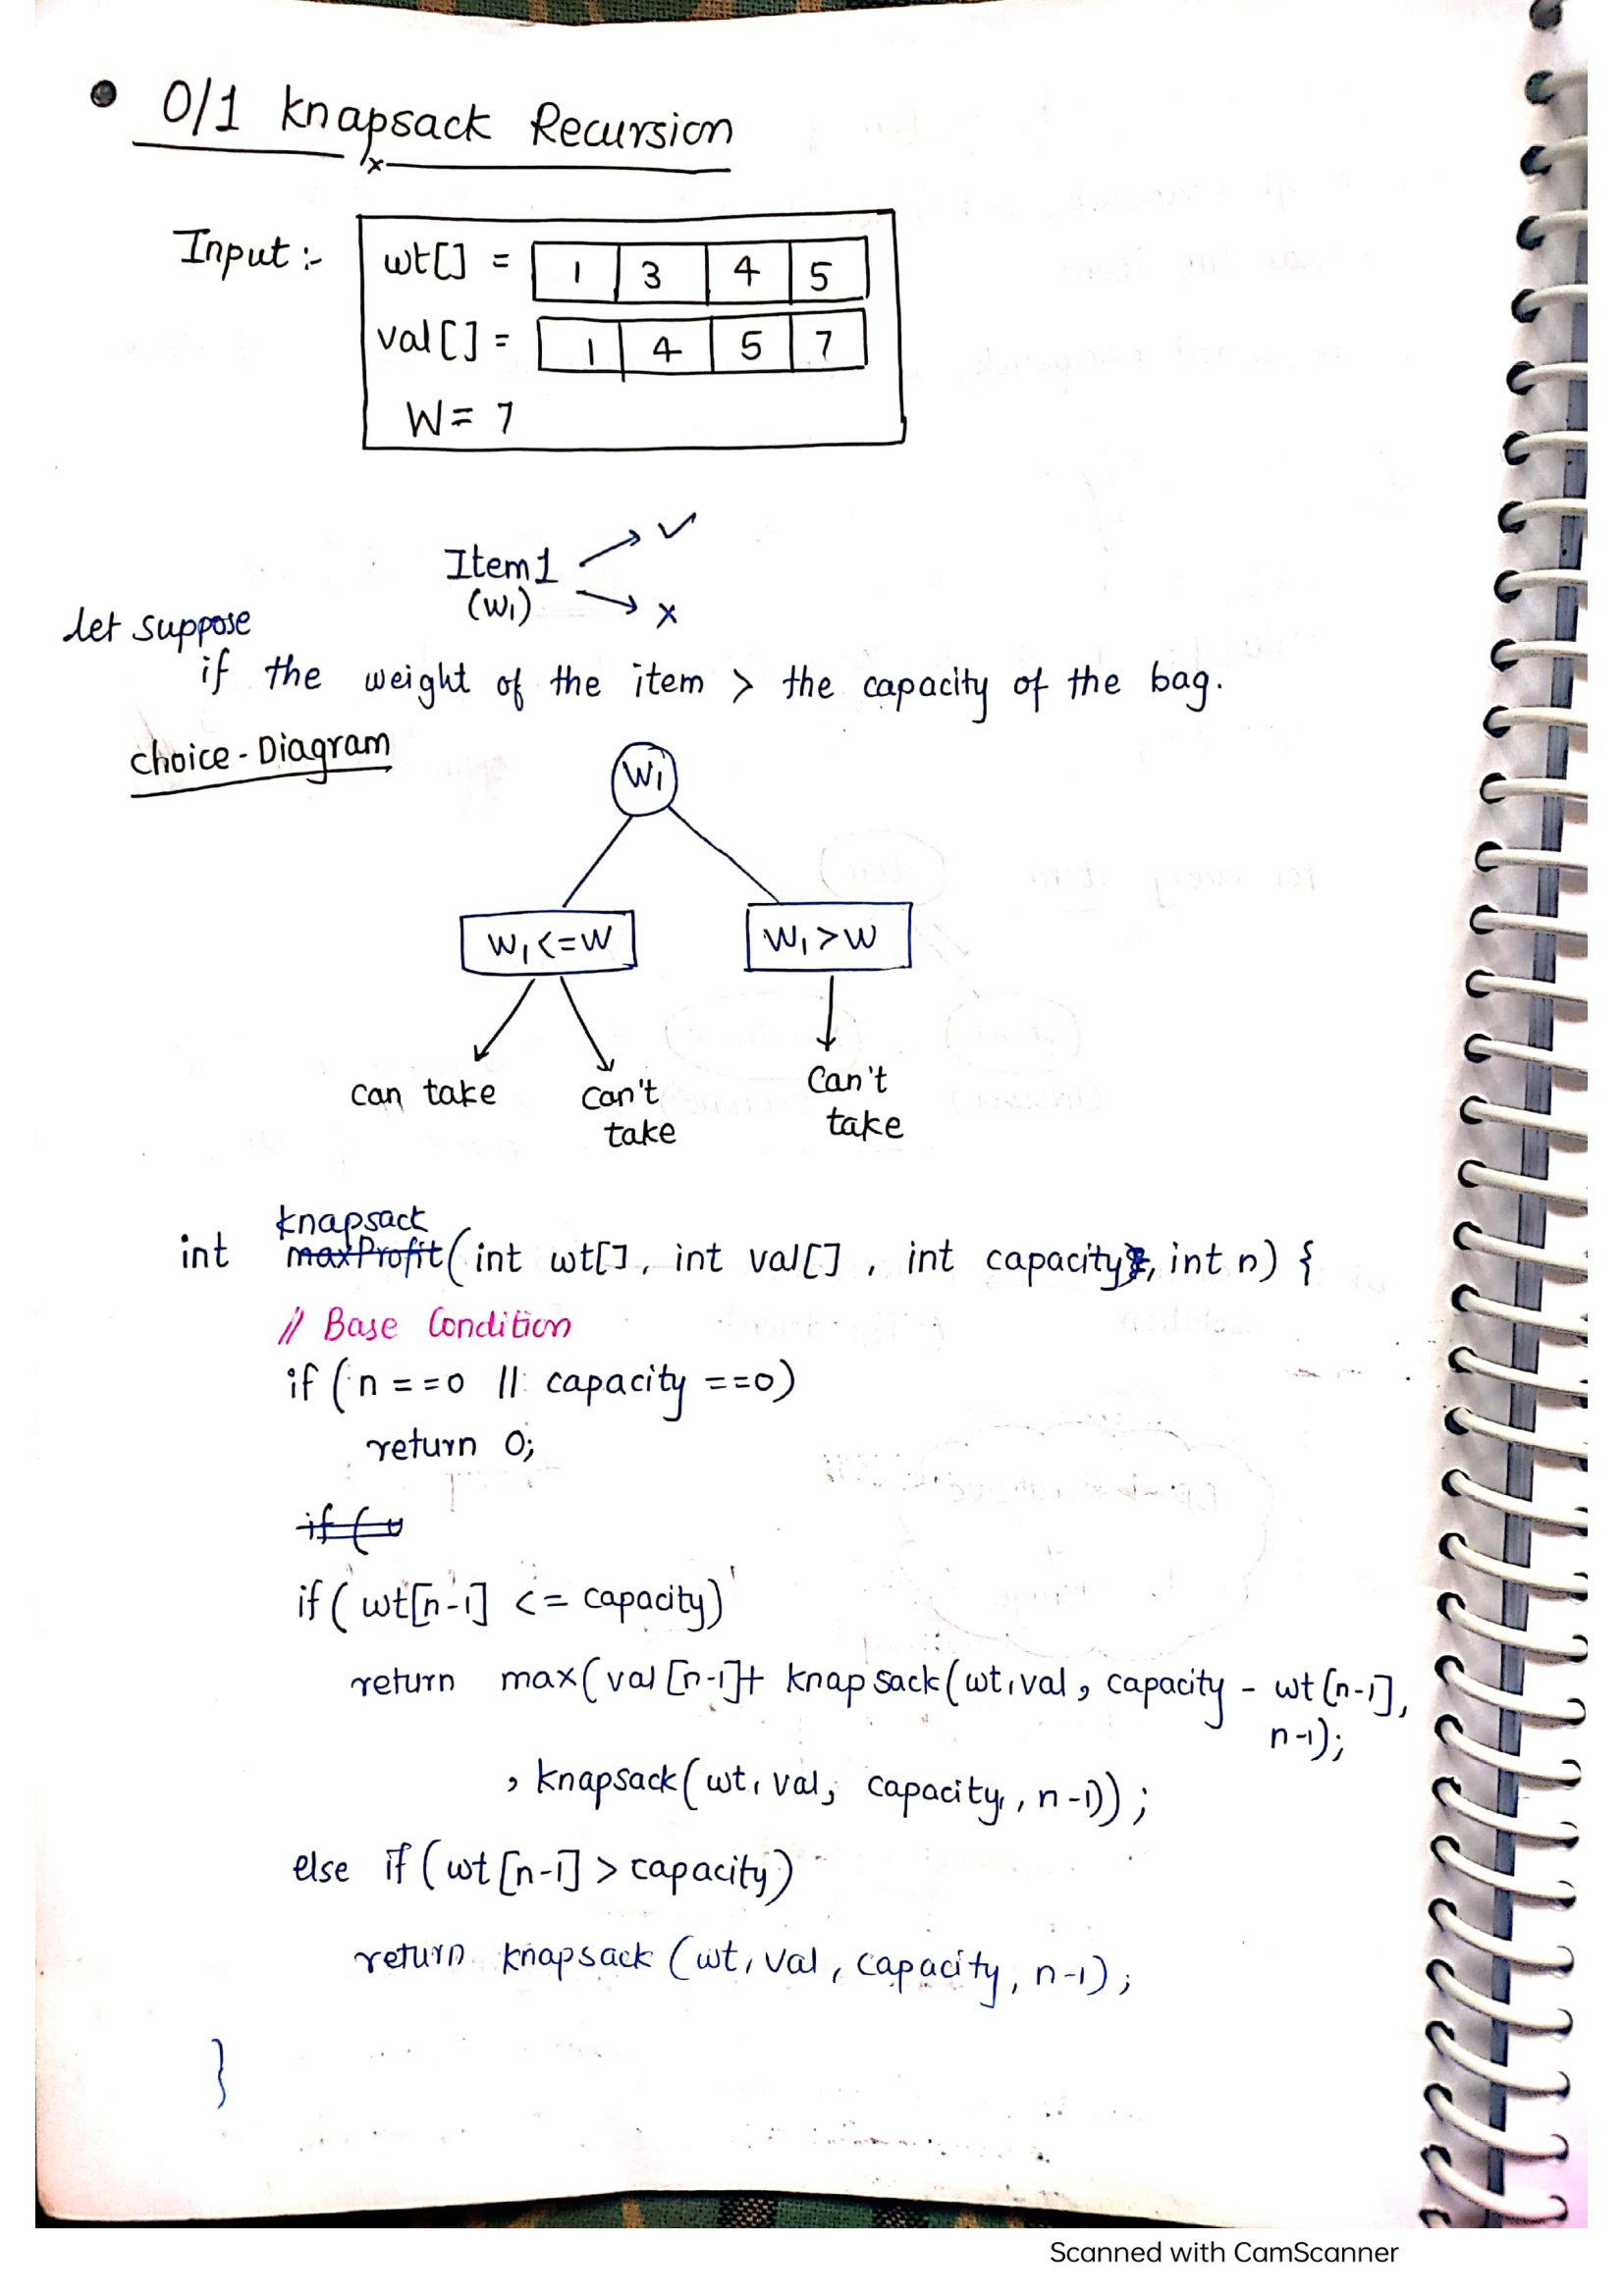 • 0/1 knapsack Recursion
Input :-
wt[] = 1 3 4 5
val[] = 1 4 5 7
W = 7
Item1 ✓
(W1) x
let suppose
if the weight of the item > the capacity of the bag.
choice - Diagram
W1
W1 <= W W1 > W
can take can't take Can't take
knapsack
int maxProfit (int wt[], int val[], int capacity, int n) {
// Base Condition
if (n == 0 || capacity == 0)
return 0;
if (
if ( wt[n-1] <= capacity)
return max( val [n-1] + knapsack(wt, val, capacity - wt [n-1],
n-1);
, knapsack( wt, val, capacity, , n-1)) ;
else if ( wt [n-1] > capacity)
return knapsack (wt, val, capacity, n-1) ;
}
Scanned with CamScanner